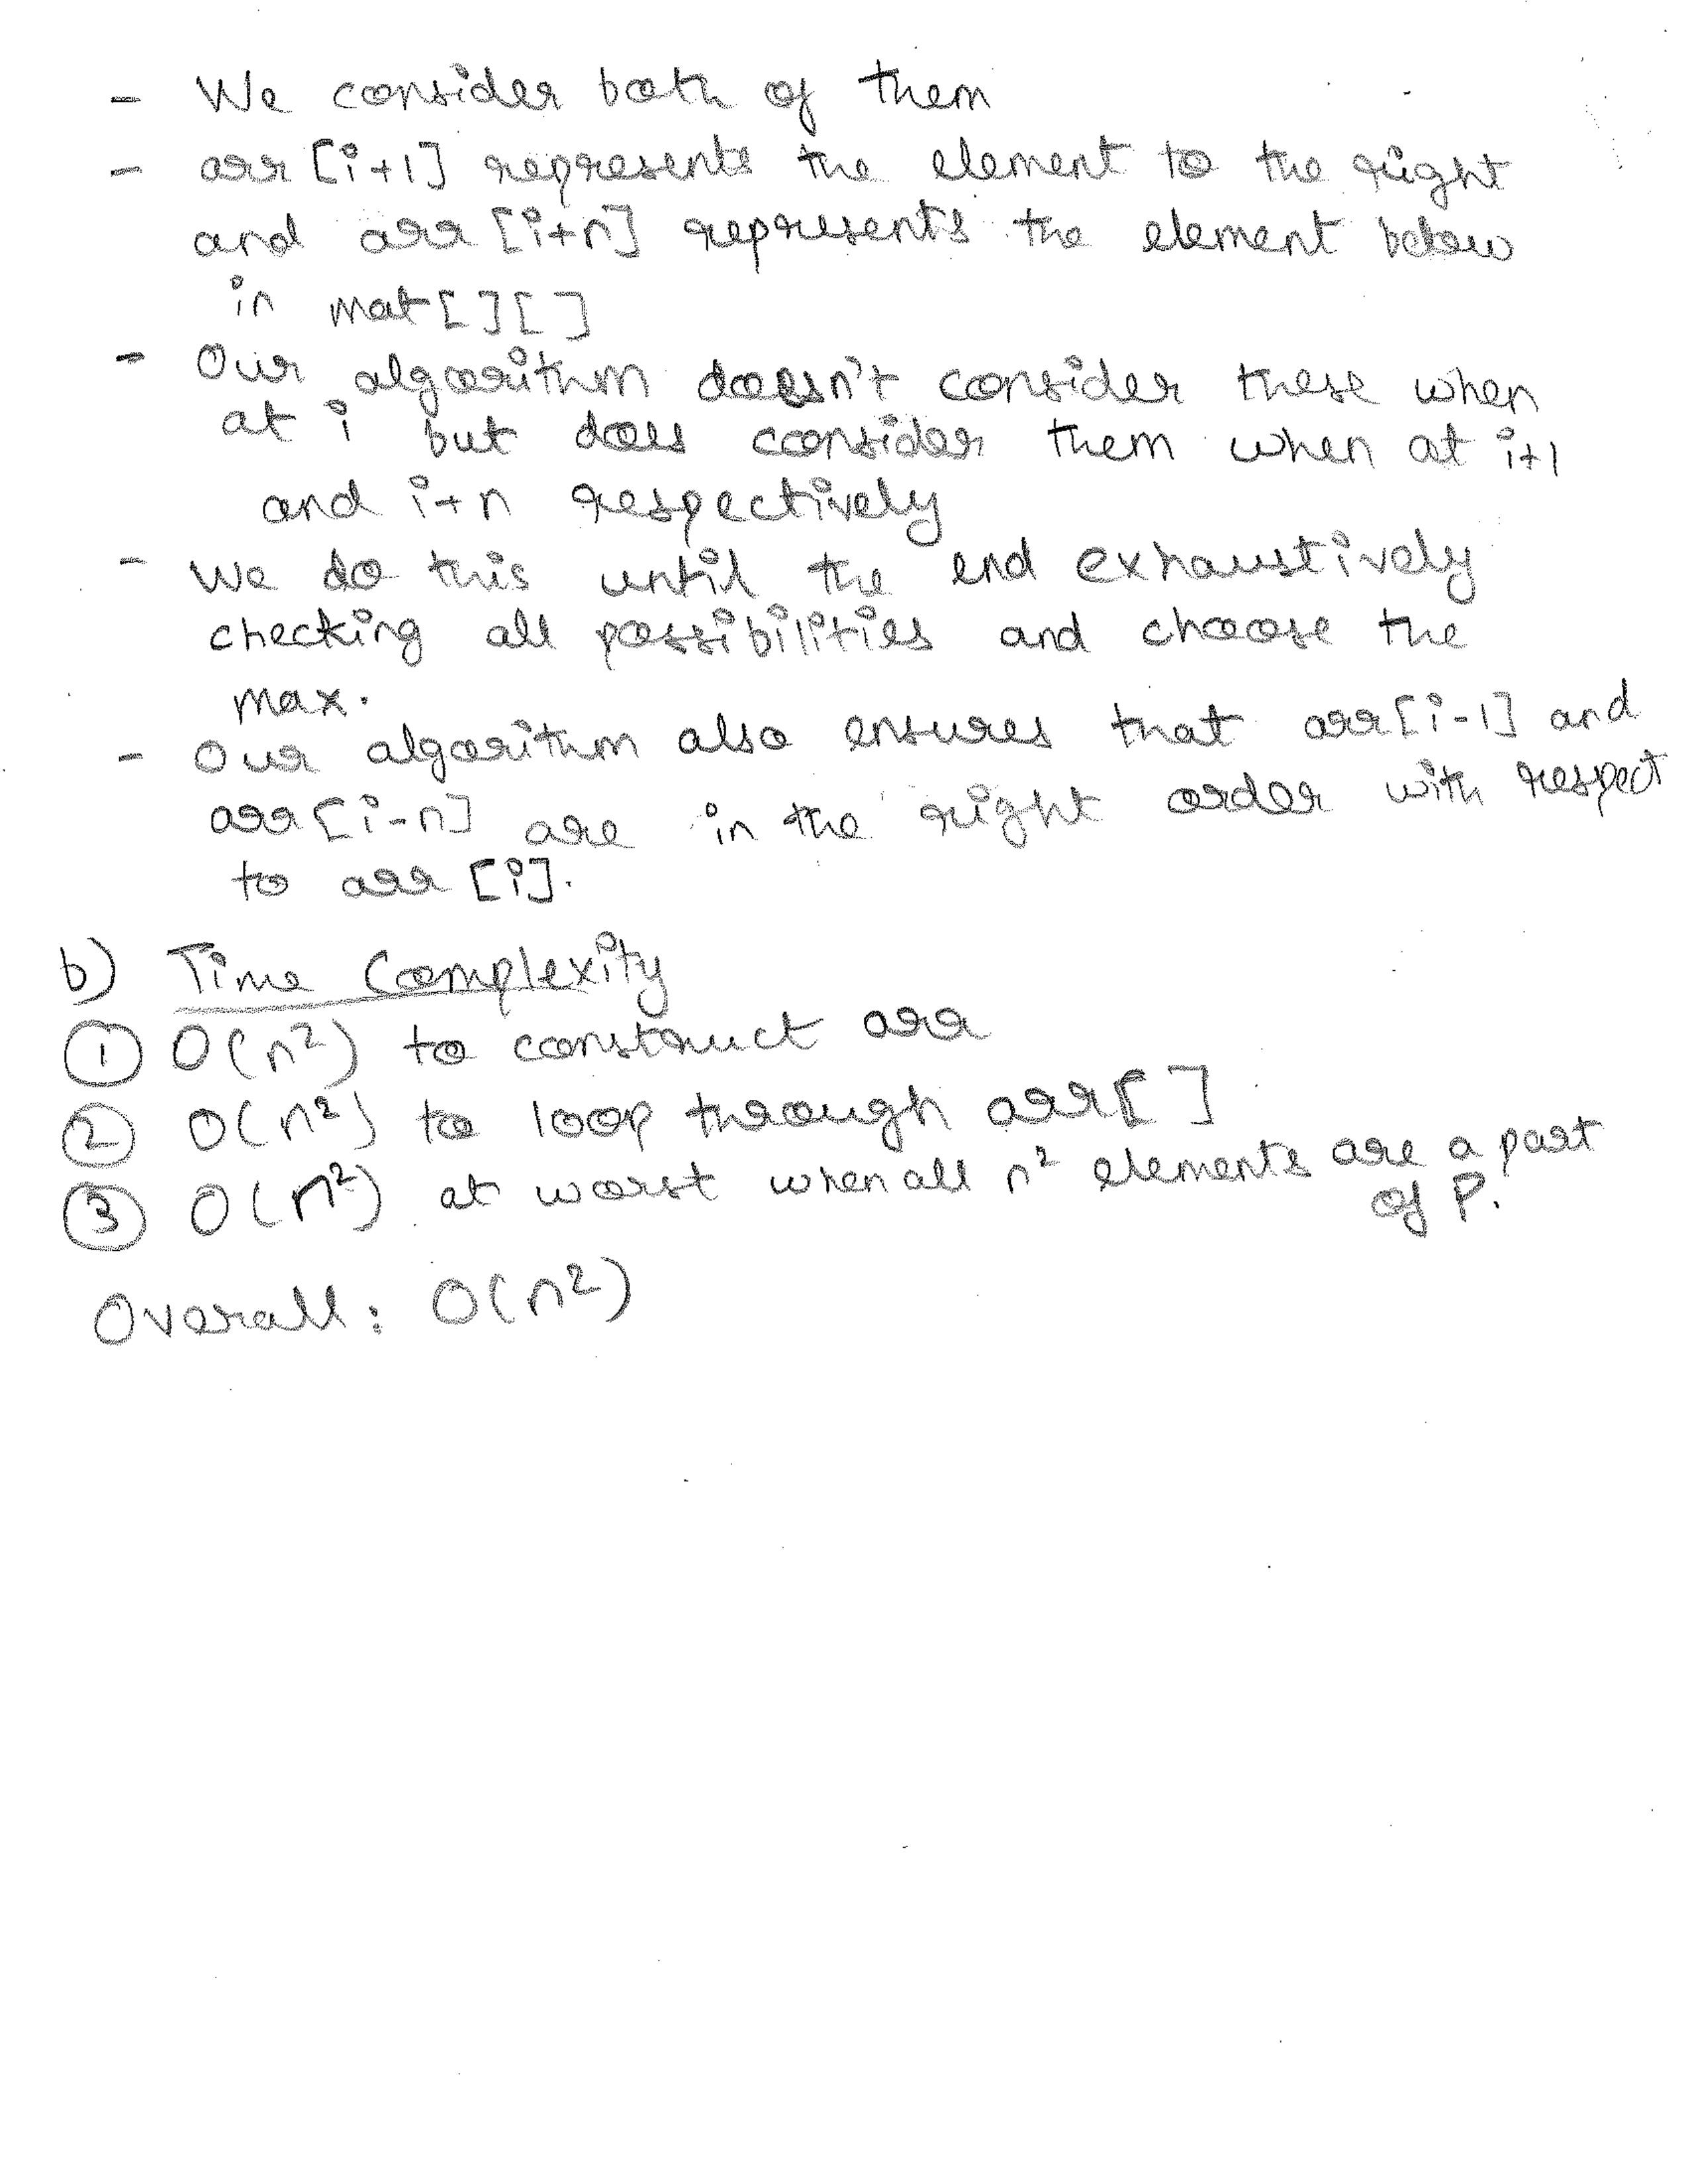 - We consider both of them
- arr [i+1] represents the element to the right
and arr [i+n] represents the element below
in mat[ ][ ]
- Our algorithm doesn't consider these when
at i but does consider them when at i+1
and i+n respectively
- We do this until the end exhaustively
checking all possibilities and choose the
max.
- Our algorithm also ensures that arr[i-1] and
arr[i-n] are in the right order with respect
to arr [i].
b) Time Complexity
① O(n²) to construct arr
② O(n²) to loop through arr[ ]
③ O(n²) at worst when all n² elements are a part
of P.
Overall: O(n²)